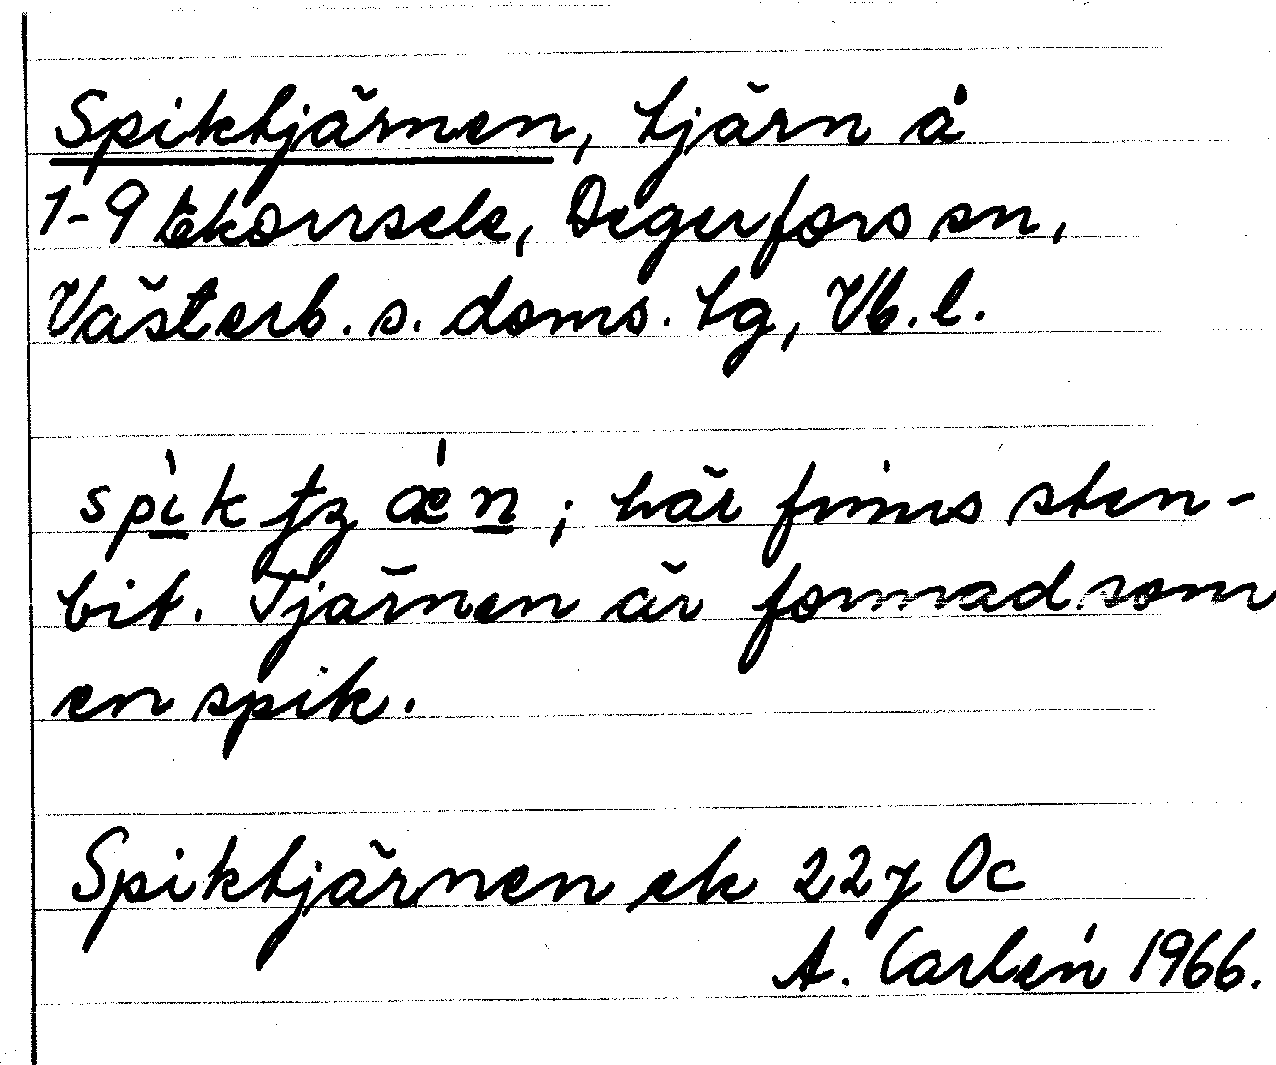 Spiktjärnen, tjärn å
1-9 Ekorrsele, Degerfors sn,
Västerb. s. doms. tg, Vb. l.
; här finns sten-
bit. Tjärnen är formad som
en spik.
Spiktjärnen ek 22 y Oc
A. Carlén 1966.